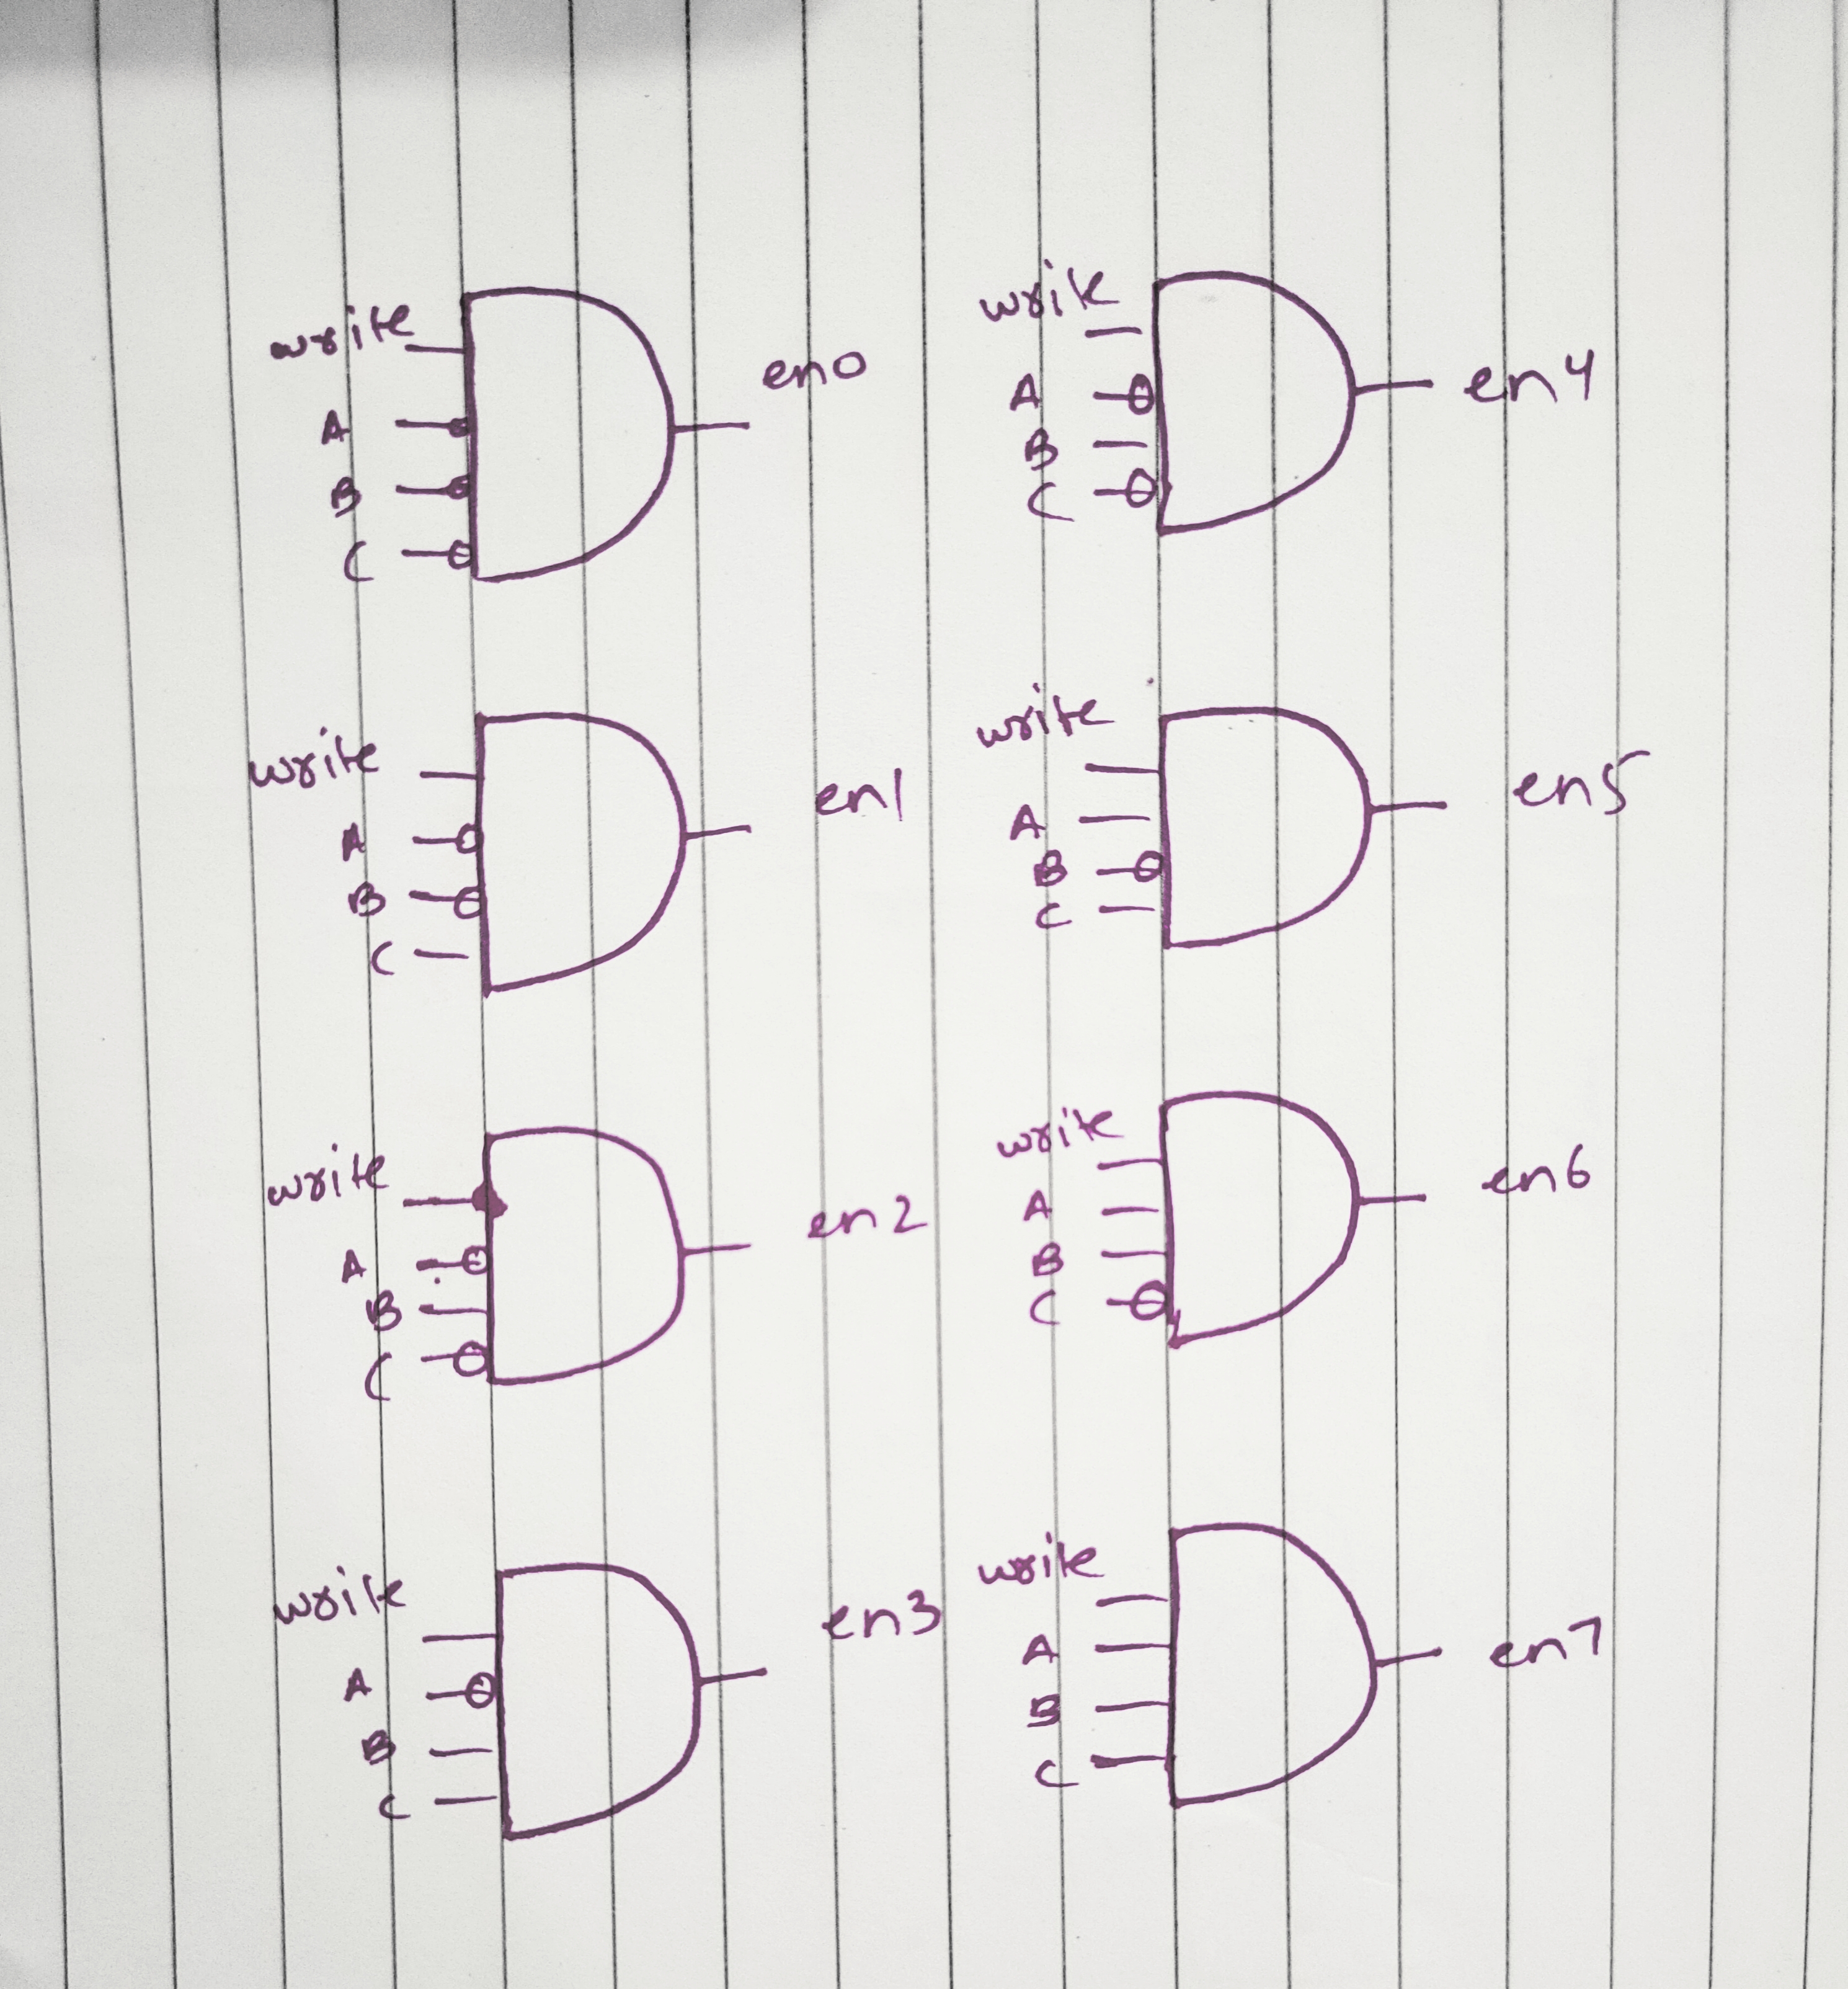 write
A
B
C
en0
write
A
B
C
en1
write
A
B
C
en2
write
A
B
C
en3
write
A
B
C
en4
write
A
B
C
en5
write
A
B
C
en6
write
A
B
C
en7